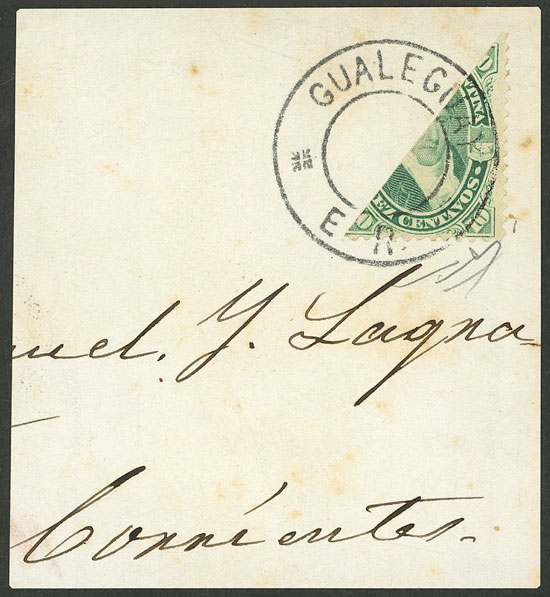 GUALEGUAY
E. R.
DIEZ CENTAVOS.
10
uel. Y. Lagna
Corrientes.